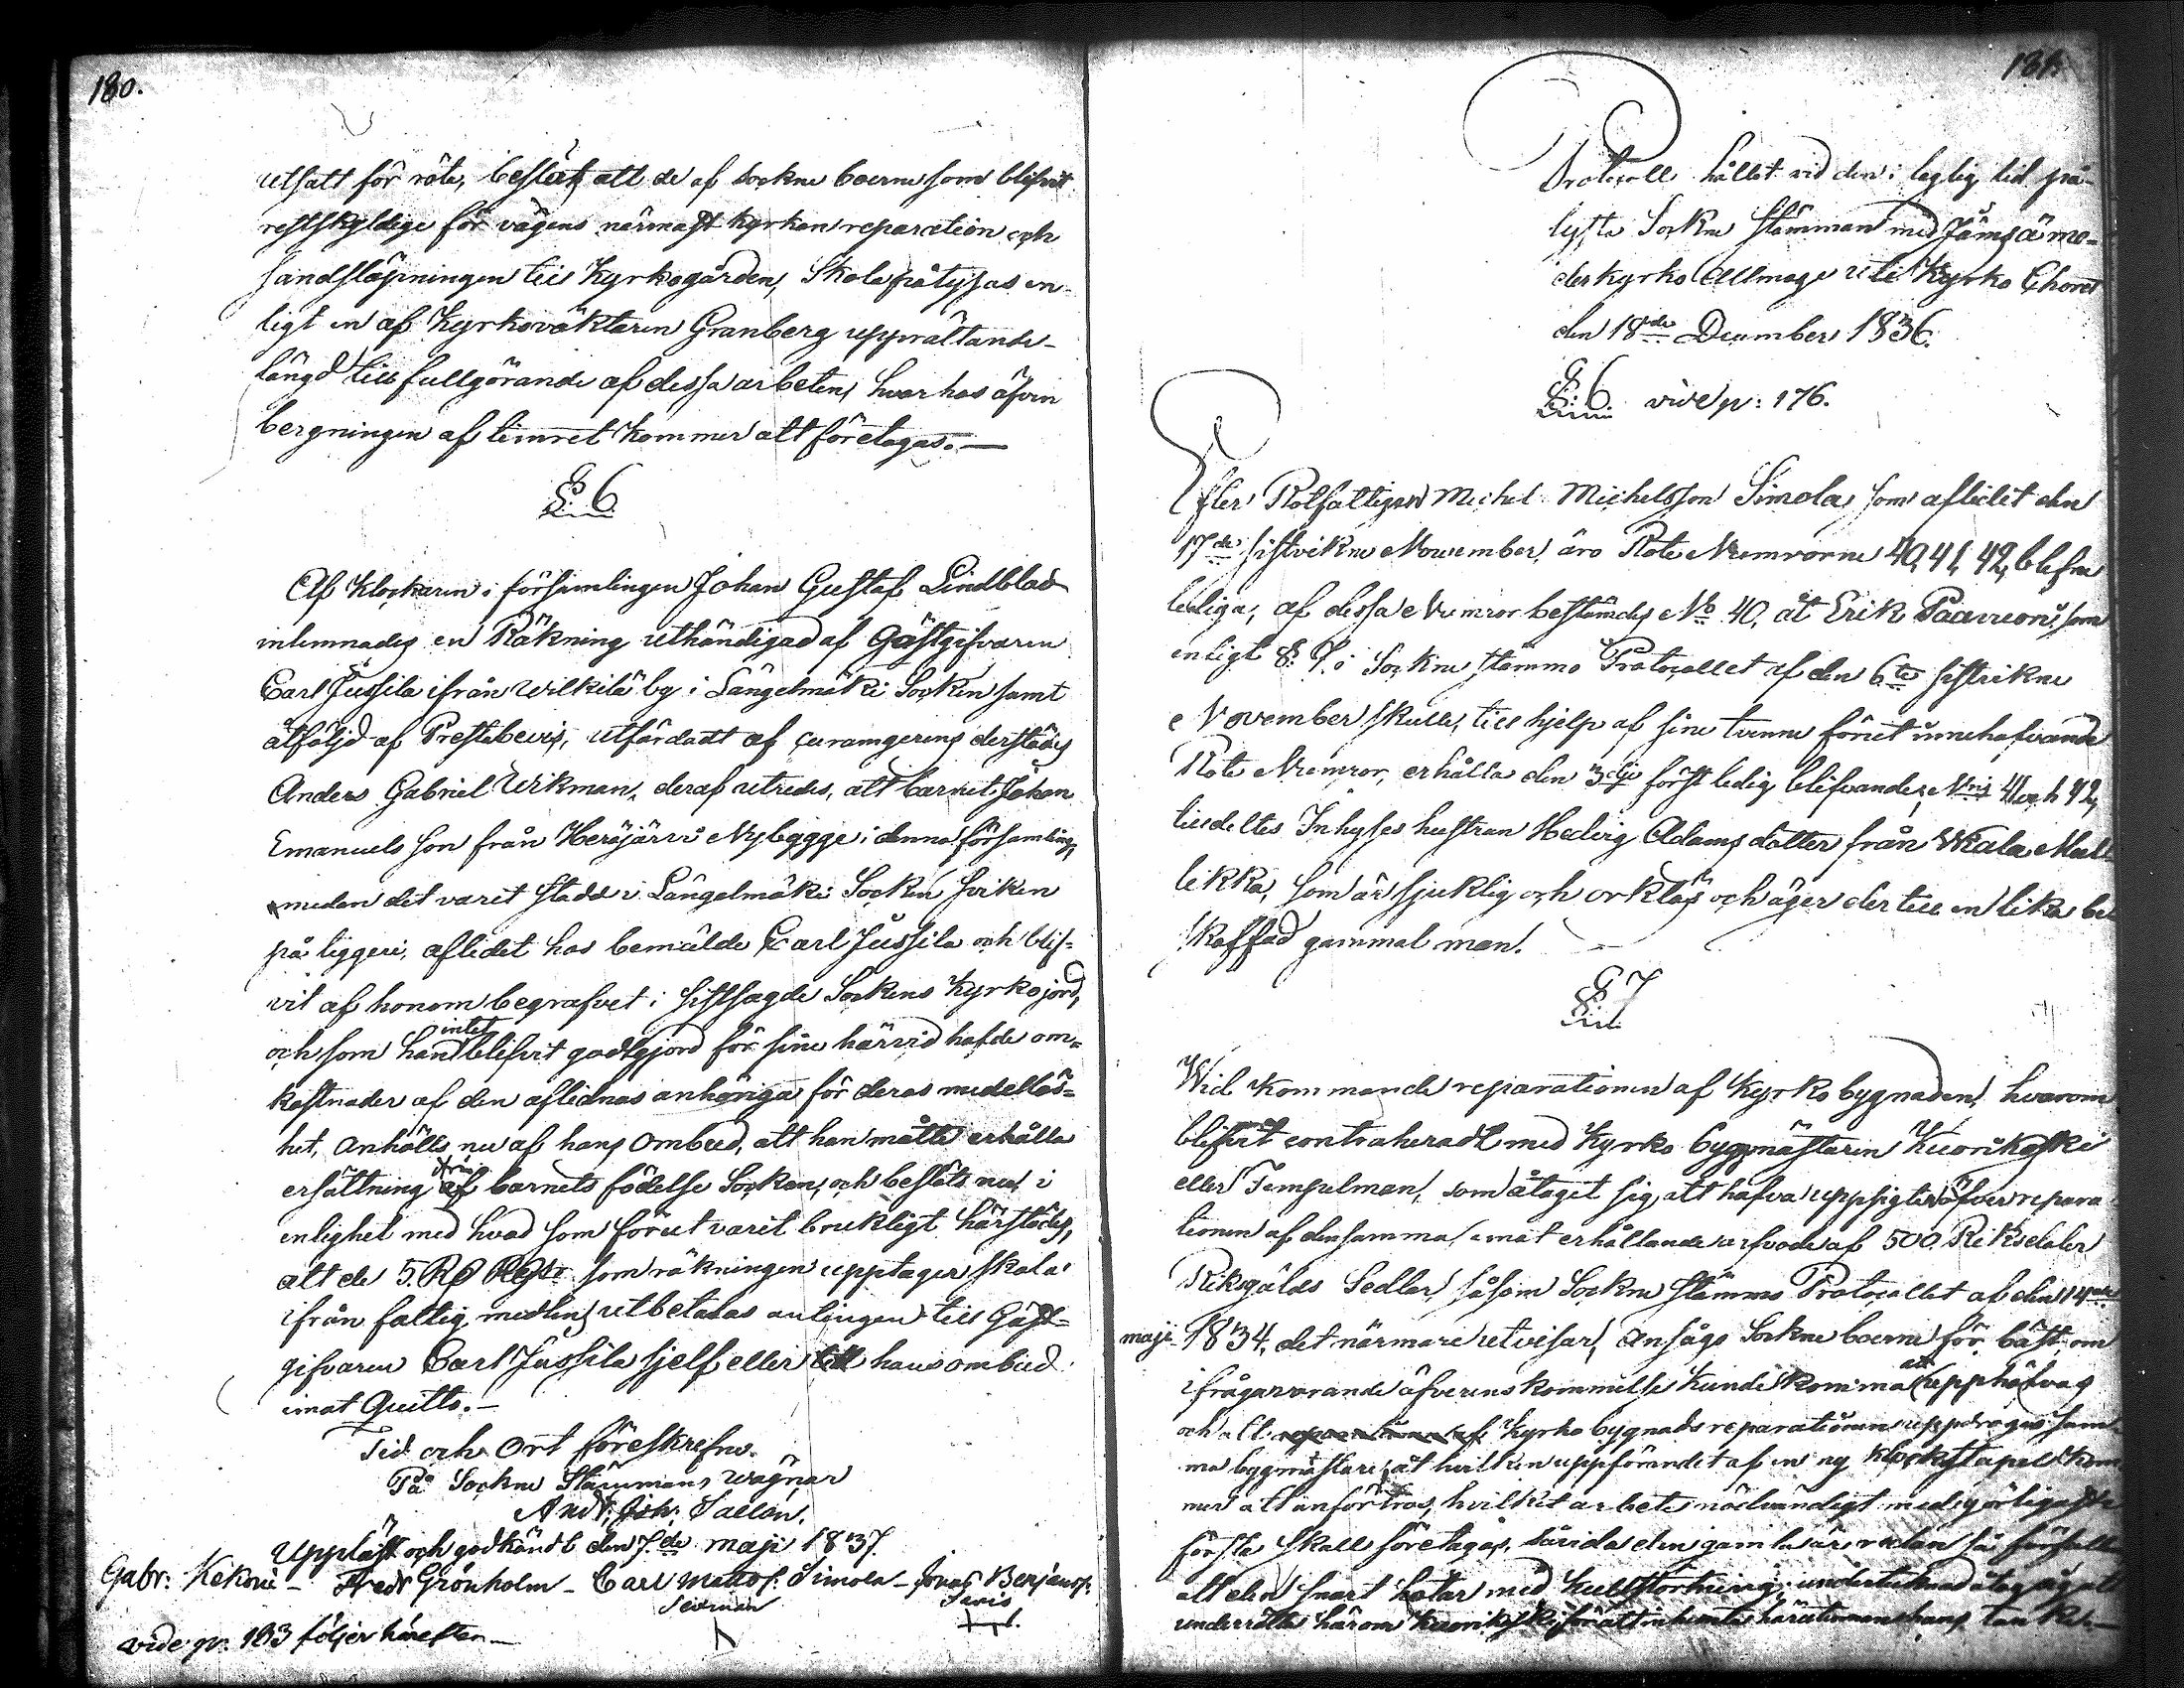 180.
utsatt för röta, beslöts att de af Sockne boerne som blifvit
restskyldige för vägens närmast Kyrkan reparation och
Sandsläpningen till Kyrkogården, Skola pålysas en-
ligt en af Kyrkoväktaren Granberg upprättande
längd till fullgörande af dessa arbeten, hvarhos äfven
bergningen af timret kommer att företagas. —
§. 6
Af Klockaren i församlingen Johan Gustaf Lindblad
inlemnades en Räkning uthändigad af Gästgifvaren
Carl Jussila ifrån Wilkilä by i Längelmäki Socken samt
åtföljd af Prestabevis, utfärdadt af curamgerens derstädes
Anders Gabriel Wikman, deraf utredes, att barnet Johan
Emanuels son från Heräjärvi Nybygge i denna församling,
medan det varit stadd i Längelmäki Socken
på liggeri, aflidet hos bemälde Carl Jussila och blif-
vit af honom begrafvet i sistsagde Sockens Kyrkojord,
och som han intet blifvit godtgjord för sine härvid hafde om-
kostnader af den aflidnas anhöriga för deras medellös-
het, anhölls nu af hans ombud, att han måtte erhålla
ersättning från barnets födelse Socken, och beslöts nu i
enlighet med hvad som förut varit brukligt härstädes,
att de 5. Rd Rgs som räkningen upptager skola
ifrån fattig medlen utbetalas antingen till Gäst-
gifvaren Carl Jussila sjelf eller till hans ombud
imot Quitto. —
Tid och Ort föreskrefne.
På Sockne Stämmans wägnar
And: Joh: Sallon.
Uppläst och godkändt den 7.de maji 1837.
Gabr: Kekoni — Fredr Grönholm — Carl Mattss: Simola — Jonas Benjamss:
Sexman
vide p: 183 följer härefter —
181.
Protocoll hållet vid den i laglig tid på-
lyste Sockne stämman med Jämsä mo-
derkyrko Allmoge uti Kyrko Choret
den 18de December 1836.
§. 6. vide p: 176.
Efter Rotfattigen Michel Michelsson Simola som aflidit den
17de sistvikne November, äro Rote Numrorne 40, 41, 42, blefne
lediga, af dessa Numror bestämdes No 40, åt Erik Paavuoni som
enligt §. 7. i Sockne stämmo Protocollet af den 6te sistvikne
November skulle, till hjelp af sine tvenne förut innehafvande
Rote Numror, erhålla den 3dje först ledig blifvande; Nris 41 och 42,
tilldeltes Inhyses hustrun Hedvig Adams dotter från
som är sjuklig och orklös och äger dertill en lika be-
skaffad gammal man. —
§ 7
Wid kommande reparationen af Kyrko bygnaden, hvarom
blifvit contraheradt med Kyrko byggmästaren Kuorikoski
eller Tempelman, som åtagit sig att hafva uppsigten öfver repara-
tionen af densamma, emot erhållande arfvode af 500 Riksdaler
Riksgälds Sedlar, såsom Sockne Stämmo Protocollet af den 14de
maji 1834, det närmare utvisar, ansågo Sockne boerne för bäst, om
ifrågavarande öfverenskommelse kunde komma att upphäfvas
och att Kyrko bygnads reparationen uppdroges sam-
ma bygmästare, åt hvilken uppförandet af en ny Klockstapel kom-
mer att anförtros, hvilket arbete nödvändigt med görligaste
första skall företagas, såvida den gamla är redan så förfallen
att den snart hotar med kullstörtning;
underrätta härom Kuorikoski för att inhemta härutinnan hans